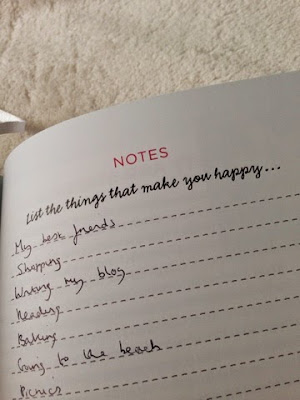 NOTES
List the things that make you happy...
My best friends
Shopping
Writing my blog
Reading
Baking
Going to the beach
Picnics